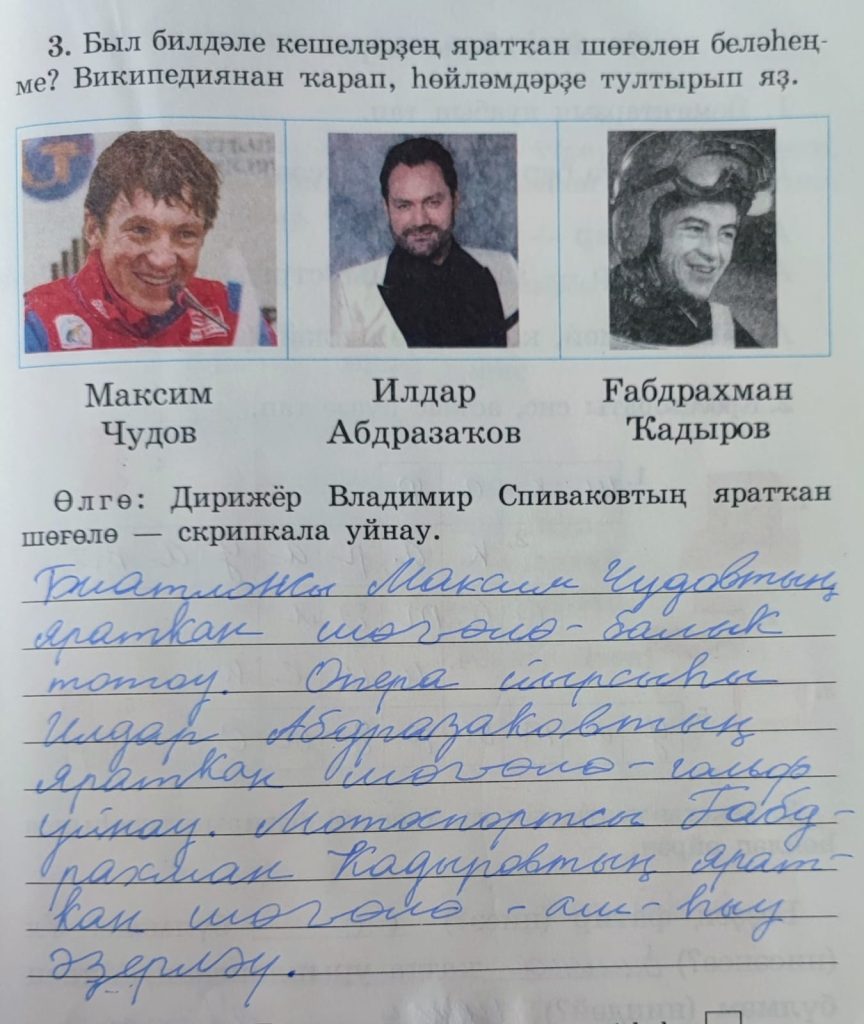 3. Был билдәле кешеләрҙең яратҡан шөғөлөн беләһең-
ме? Википедиянан ҡарап, һөйләмдәрҙе тултырып яҙ.
Максим Чудов
Илдар Абдразаҡов
Ғабдрахман Ҡадыров
Өлгө: Дирижёр Владимир Спиваковтың яратҡан
шөғөлө — скрипкала уйнау.
Биатлонсы Максим Чудовтың
яратҡан шөғөлө - балыҡ
тотоу. Опера йырсыһы
Илдар Абдразаҡовтың
яратҡан шөғөлө - гольф
уйнау. Мотоспортсы Ғабд-
рахман Ҡадыровтың ярат-
ҡан шөғөлө - аш-һыу
әҙерләү.